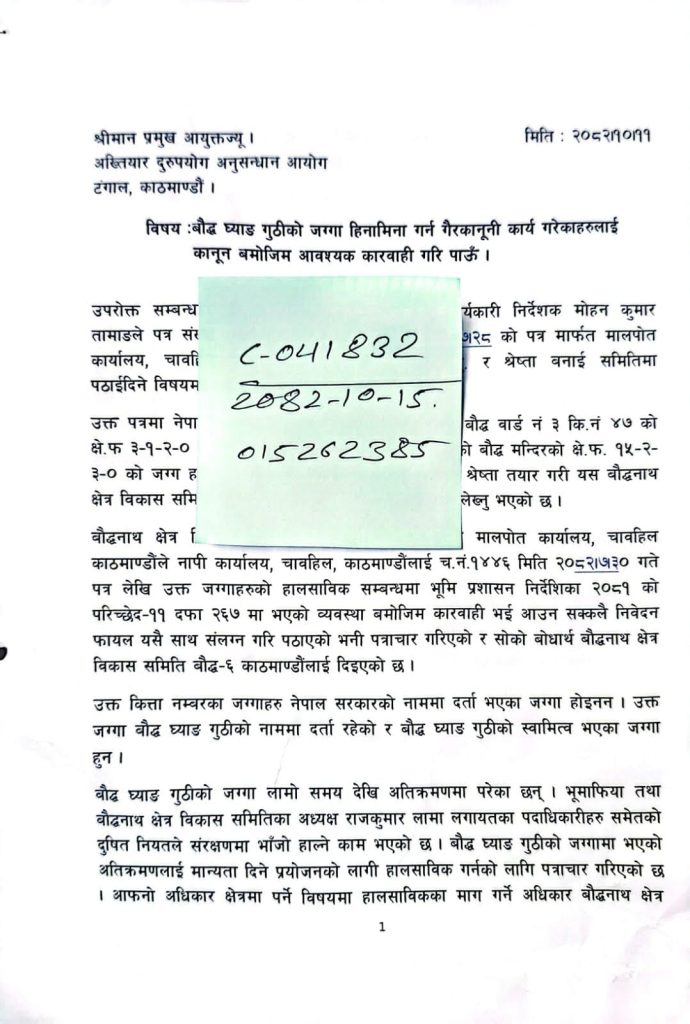 श्रीमान प्रमुख आयुक्तज्यू ।
मिति : २०८२।१०।११
अख्तियार दुरुपयोग अनुसन्धान आयोग
टंगाल, काठमाण्डौं ।
विषय :बौद्ध घ्याङ गुठीको जग्गा हिनामिना गर्न गैरकानूनी कार्य गरेकाहरुलाई
कानून बमोजिम आवश्यक कारवाही गरि पाऊँ ।
उपरोक्त सम्बन्ध र्यकारी निर्देशक मोहन कुमार
तामाङले पत्र सं को पत्र मार्फत मालपोत
कार्यालय, चावहि र श्रेष्ता बनाई समितिमा
पठाईदिने विषयम
C-041832
2082-10-15.
015262385
उक्त पत्रमा नेपा बौद्ध वार्ड नं ३ कि.नं ४७ को
क्षे.फ ३-१-२-० बौद्ध मन्दिरको क्षे.फ. १५-२-
३-० को जग्ग ह श्रेष्ता तयार गरी यस बौद्धनाथ
क्षेत्र विकास समि लेख्नु भएको छ ।
बौद्धनाथ क्षेत्र मालपोत कार्यालय, चावहिल
काठमाण्डौंले नापी कार्यालय, चावहिल, काठमाण्डौंलाई च.नं.१४४६ मिति २०८२।७।३० गते
पत्र लेखि उक्त जग्गाहरुको हालसाविक सम्बन्धमा भूमि प्रशासन निर्देशिका २०८१ को
परिच्छेद-११ दफा २६७ मा भएको व्यवस्था बमोजिम कारवाही भई आउन सक्कलै निवेदन
फायल यसै साथ संलग्न गरि पठाएको भनी पत्राचार गरिएको र सोको बोधार्थ बौद्धनाथ क्षेत्र
विकास समिति बौद्ध-६ काठमाण्डौंलाई दिइएको छ ।
उक्त कित्ता नम्बरका जग्गाहरु नेपाल सरकारको नाममा दर्ता भएका जग्गा होइनन । उक्त
जग्गा बौद्ध घ्याङ गुठीको नाममा दर्ता रहेको र बौद्ध घ्याङ गुठीको स्वामित्व भएका जग्गा
हुन ।
बौद्ध घ्याङ गुठीको जग्गा लामो समय देखि अतिक्रमणमा परेका छन् । भूमाफिया तथा
बौद्धनाथ क्षेत्र विकास समितिका अध्यक्ष राजकुमार लामा लगायतका पदाधिकारीहरु समेतको
दुषित नियतले संरक्षणमा भाँजो हाल्ने काम भएको छ । बौद्ध घ्याङ गुठीको जग्गामा भएको
अतिक्रमणलाई मान्यता दिने प्रयोजनको लागी हालसाविक गर्नको लागि पत्राचार गरिएको छ
। आफनो अधिकार क्षेत्रमा पर्ने विषयमा हालसाविकका माग गर्ने अधिकार बौद्धनाथ क्षेत्र
1